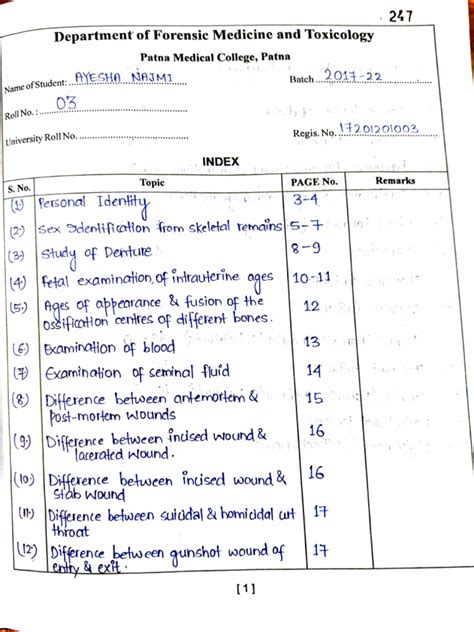 247
Department of Forensic Medicine and Toxicology
Patna Medical College, Patna
Name of Student: AYESHA NAJMI Batch 2017-22
Roll No. : 03
University Roll No. Regis. No. 17201201003
INDEX
S. No. Topic PAGE No. Remarks
(1) Personal Identity 3-4
(2) Sex Identification from skeletal remains 5-7
(3) Study of Denture 8-9
(4) Fetal examination, of intrauterine ages 10-11
(5) Ages of appearance & fusion of the 12
ossification centres of different bones.
(6) Examination of blood 13
(7) Examination of seminal fluid 14
(8) Difference between antemortem & 15
post-mortem wounds
(9) Difference between incised wound & 16
lacerated wound.
(10) Difference between incised wound & 16
stab wound
(11) Difference between suicidal & homicidal cut 17
throat
(12) Difference between gunshot wound of 17
entry & exit.
[1]